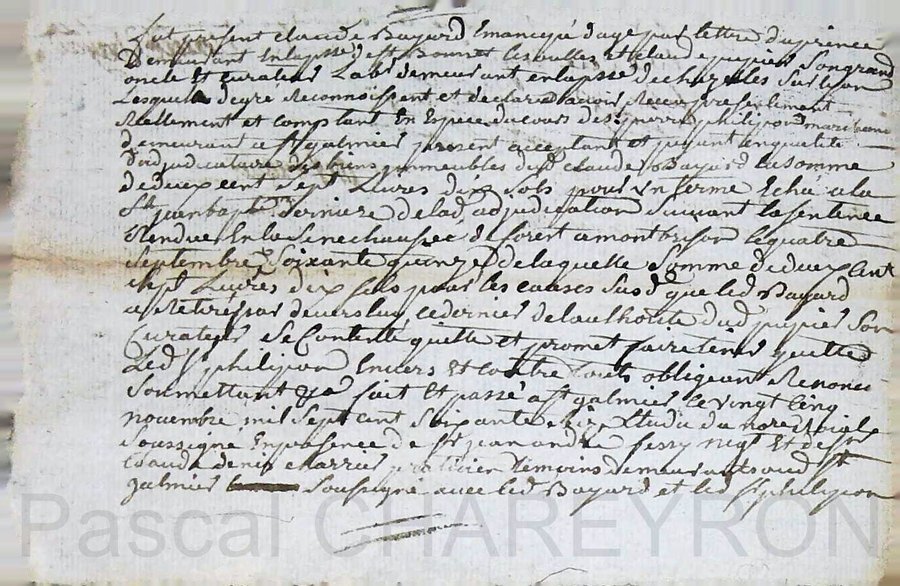 fut présent claude Bayard Emancipé dage par lettre du prince
Demeurant En la psse de St Bonnet les oulles et claude pupier Son grand
oncle Et curateur Labr demeurant en la psse de chazelles Sur lion
Lesquels de gré Reconnoissent et declarent avoir Receu presentement
Reellement et comptant En Espece du cours de Sr pierre philipon marchand
demeurant a St galmier present acceptant et payant en qualité
dadjudicataire des biens immeubles dud claude Bayard La Somme
de deux cent Sept Livres dix Sols pour un terme Echu a la
St jean bapt. Derniere de lad adjudication Suivant la Sentence
Rendue En la Senechaussee de forest a montbrison le quatre
Septembre Soixante quinze de laquelle Somme de deux Cent
Sept Livres dix Sols pour les causes Susd que led Bayard
a Retiré par devers luy ce dernier de lauthorité dud pupier Son
Curateur Se Contente quitte et promet faire tenir quitte
Led Sr philipon Envers Et Contre touts obligeant Renonc
Soumettant &a fait Et passé a St galmier le vingt Cinq
novembre mil Sept cent Soixante Seize Etude du nore Royal
Soussigné En presence de Sr jean andré fessy negt Et de Sr
Claude denis charrier praticien temoins demeurants aud St
galmier Soussigné avec led Bayard et led Sr philipon
Pascal CHAREYRON